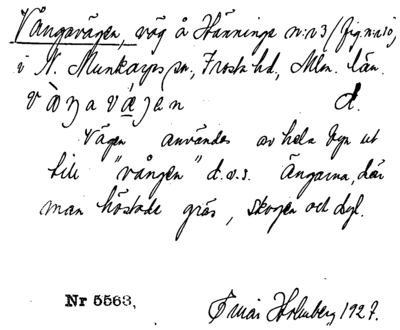 Vångavägen, väg å Hänninge n:r 3 (fig. n:r 10)
i N. Munkarps sn, Frosta hd, Mlm. län.
d.
Vägen användes av hela byn ut
till "vången" d.v.s. ängarna, där
man höstade gräs, skogen och dyl.
Nr 5563,
Holmberg 1927.